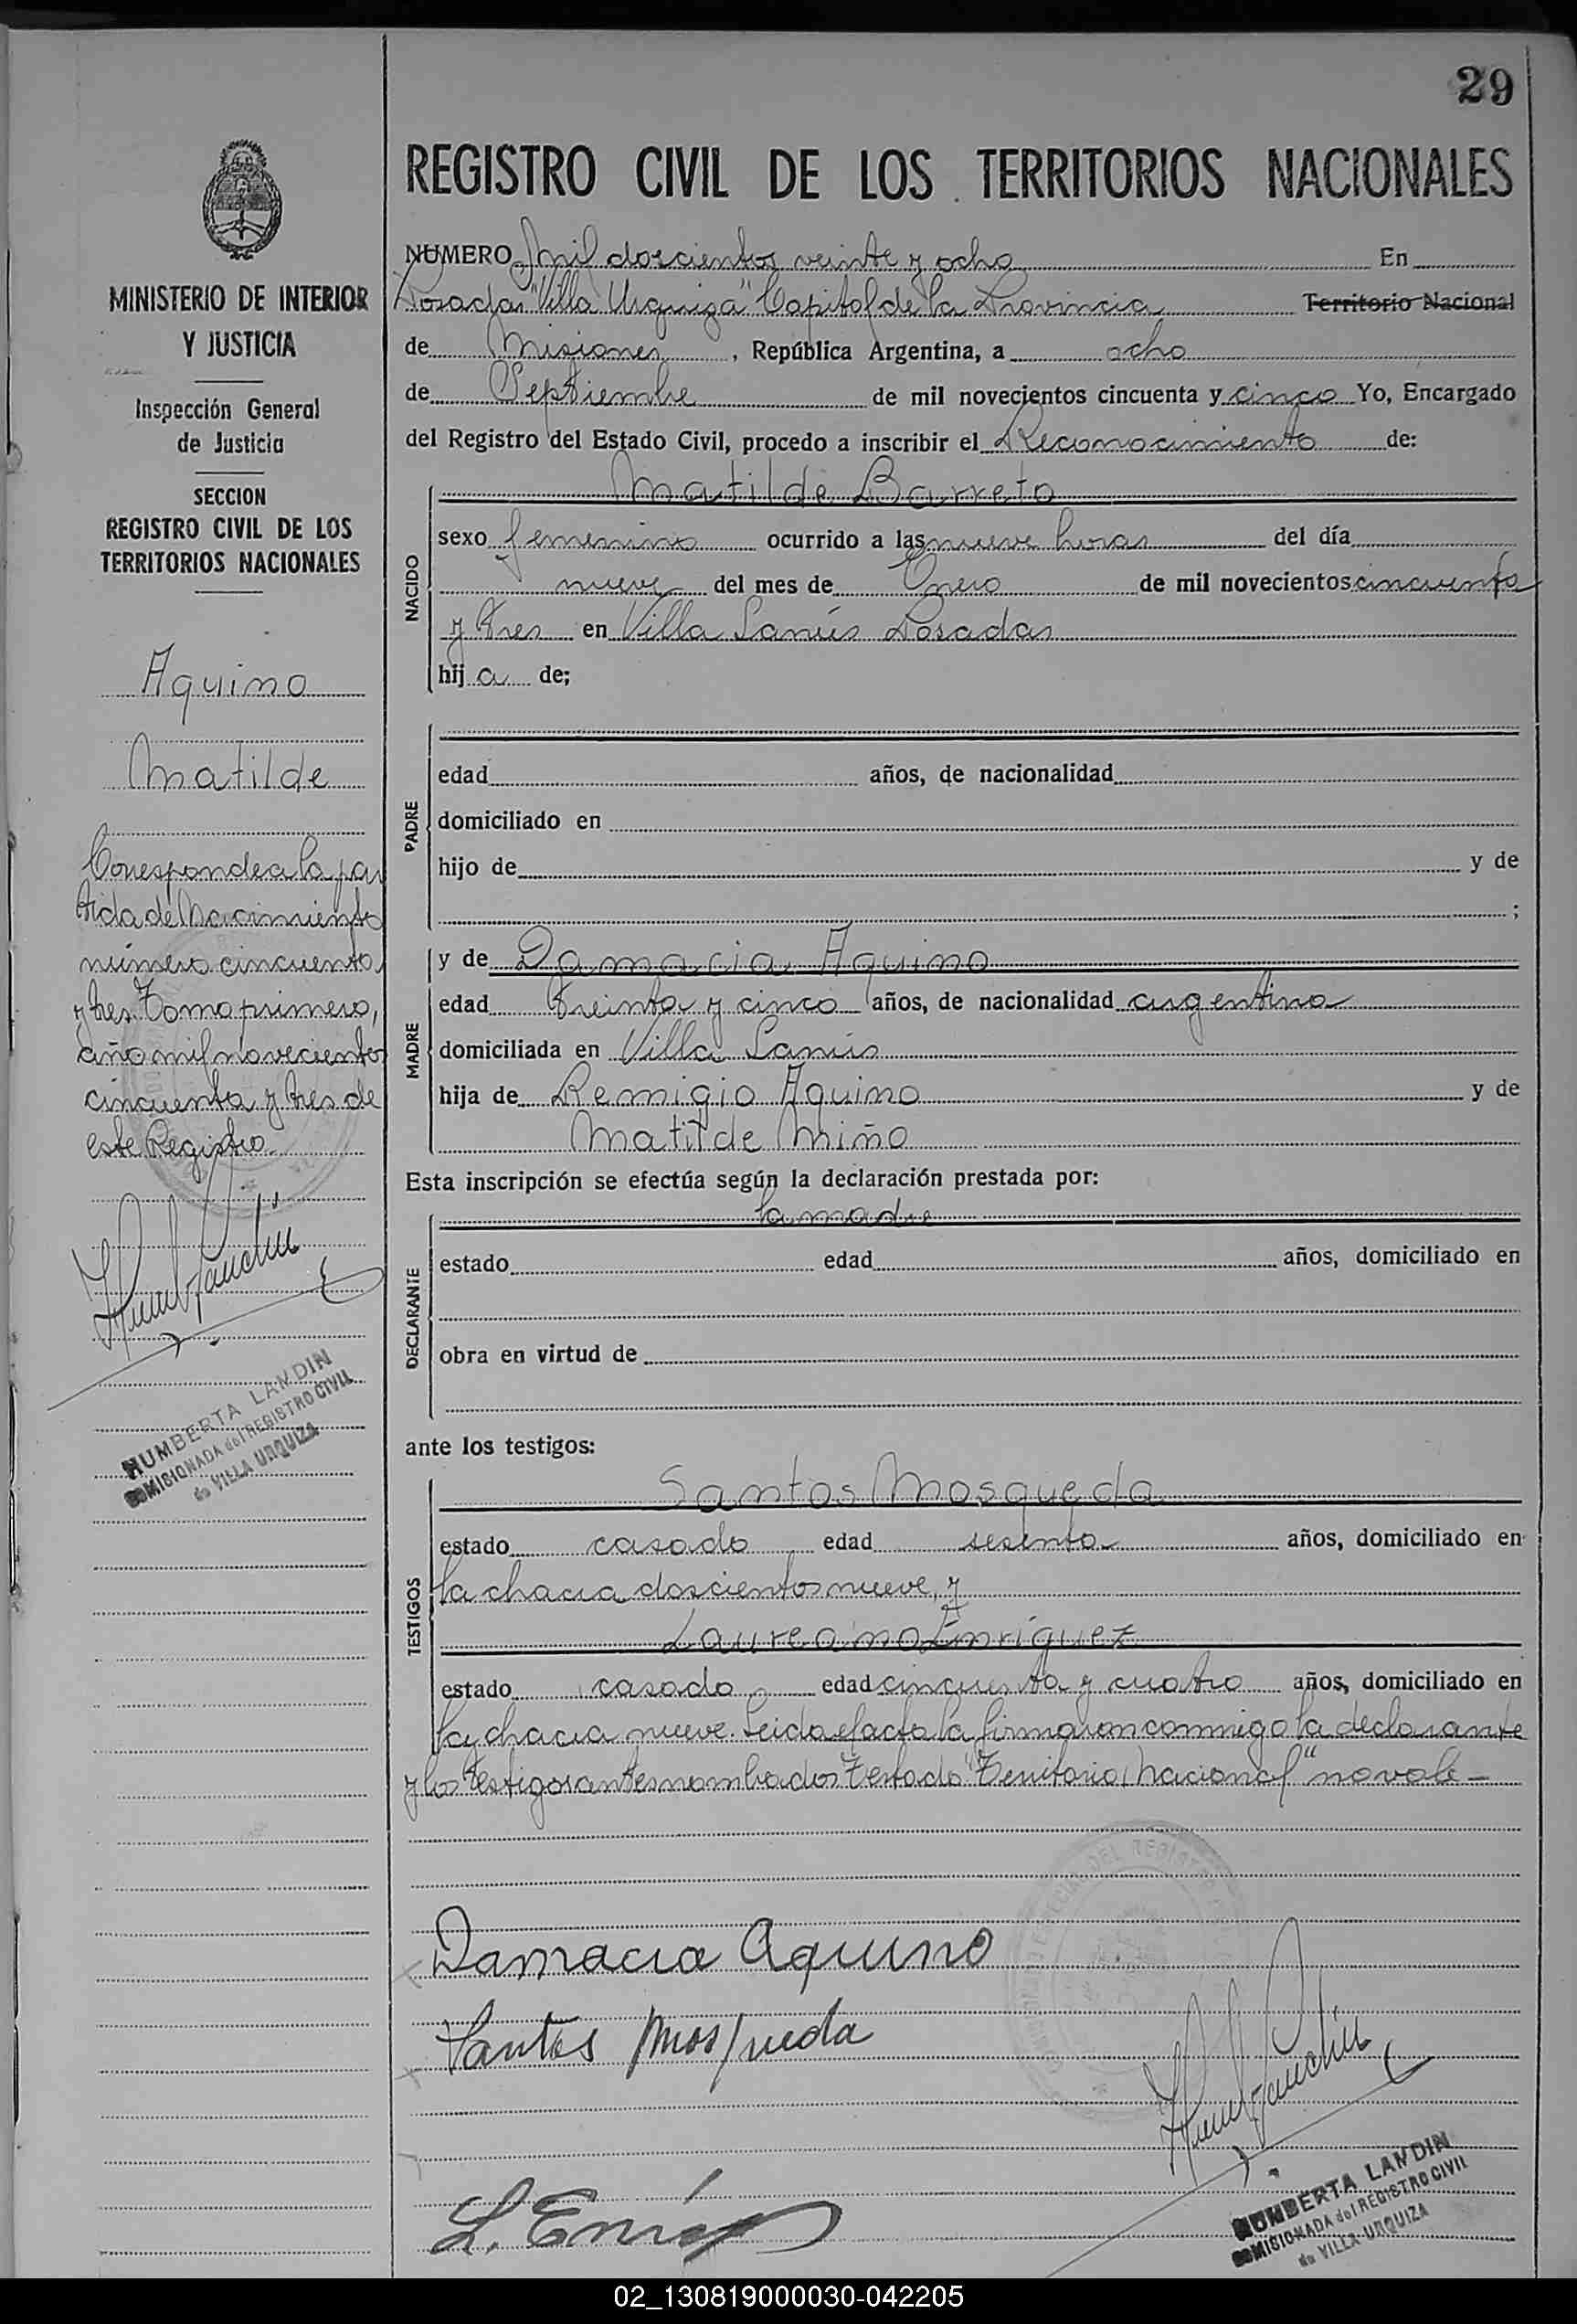 29
REGISTRO CIVIL DE LOS TERRITORIOS NACIONALES
MINISTERIO DE INTERIOR
Y JUSTICIA
Inspección General
de Justicia
SECCION
REGISTRO CIVIL DE LOS
TERRITORIOS NACIONALES
Aquino
Matilde
Corresponde a la par
tida de Nacimiento
número cincuenta
y tres Tomo primero,
año mil novecientos
cincuenta y tres de
este Registro.
HUMBERTA LANDIN
COMISIONADA del REGISTRO CIVIL
de VILLA URQUIZA
NUMERO Mil doscientos veinte y ocho En
Posadas "Villa Urquiza" Capital de la Provincia Territorio Nacional
de Misiones, República Argentina, a ocho
de Septiembre de mil novecientos cincuenta y cinco Yo, Encargado
del Registro del Estado Civil, procedo a inscribir el Reconocimiento de:
NACIDO
Matilde Barreto
sexo femenino ocurrido a las nueve horas del día
nueve del mes de Enero de mil novecientos cincuenta
y tres en Villa Lanús Posadas
hij a de;
PADRE
edad años, de nacionalidad
domiciliado en
hijo de y de
;
MADRE
y de Damacia Aquino
edad treinta y cinco años, de nacionalidad argentina
domiciliada en Villa Lanús
hija de Remigio Aquino y de
Matilde Miño
Esta inscripción se efectúa según la declaración prestada por:
DECLARANTE
la madre
estado edad años, domiciliado en
obra en virtud de
ante los testigos:
TESTIGOS
Santos Mosqueda
estado casado edad sesenta años, domiciliado en
la chacra doscientos nueve, y
Laureano Enriquez
estado casado edad cincuenta y cuatro años, domiciliado en
la chacra nueve. Leida el acta la firmaron conmigo la declarante
y los testigos antes nombrados Testado "Territorio Nacional" no vale -
Damacia Aquino
Santos Mosqueda
L. Enríq
HUMBERTA LANDIN
COMISIONADA del REGISTRO CIVIL
de VILLA URQUIZA
02_130819000030-042205